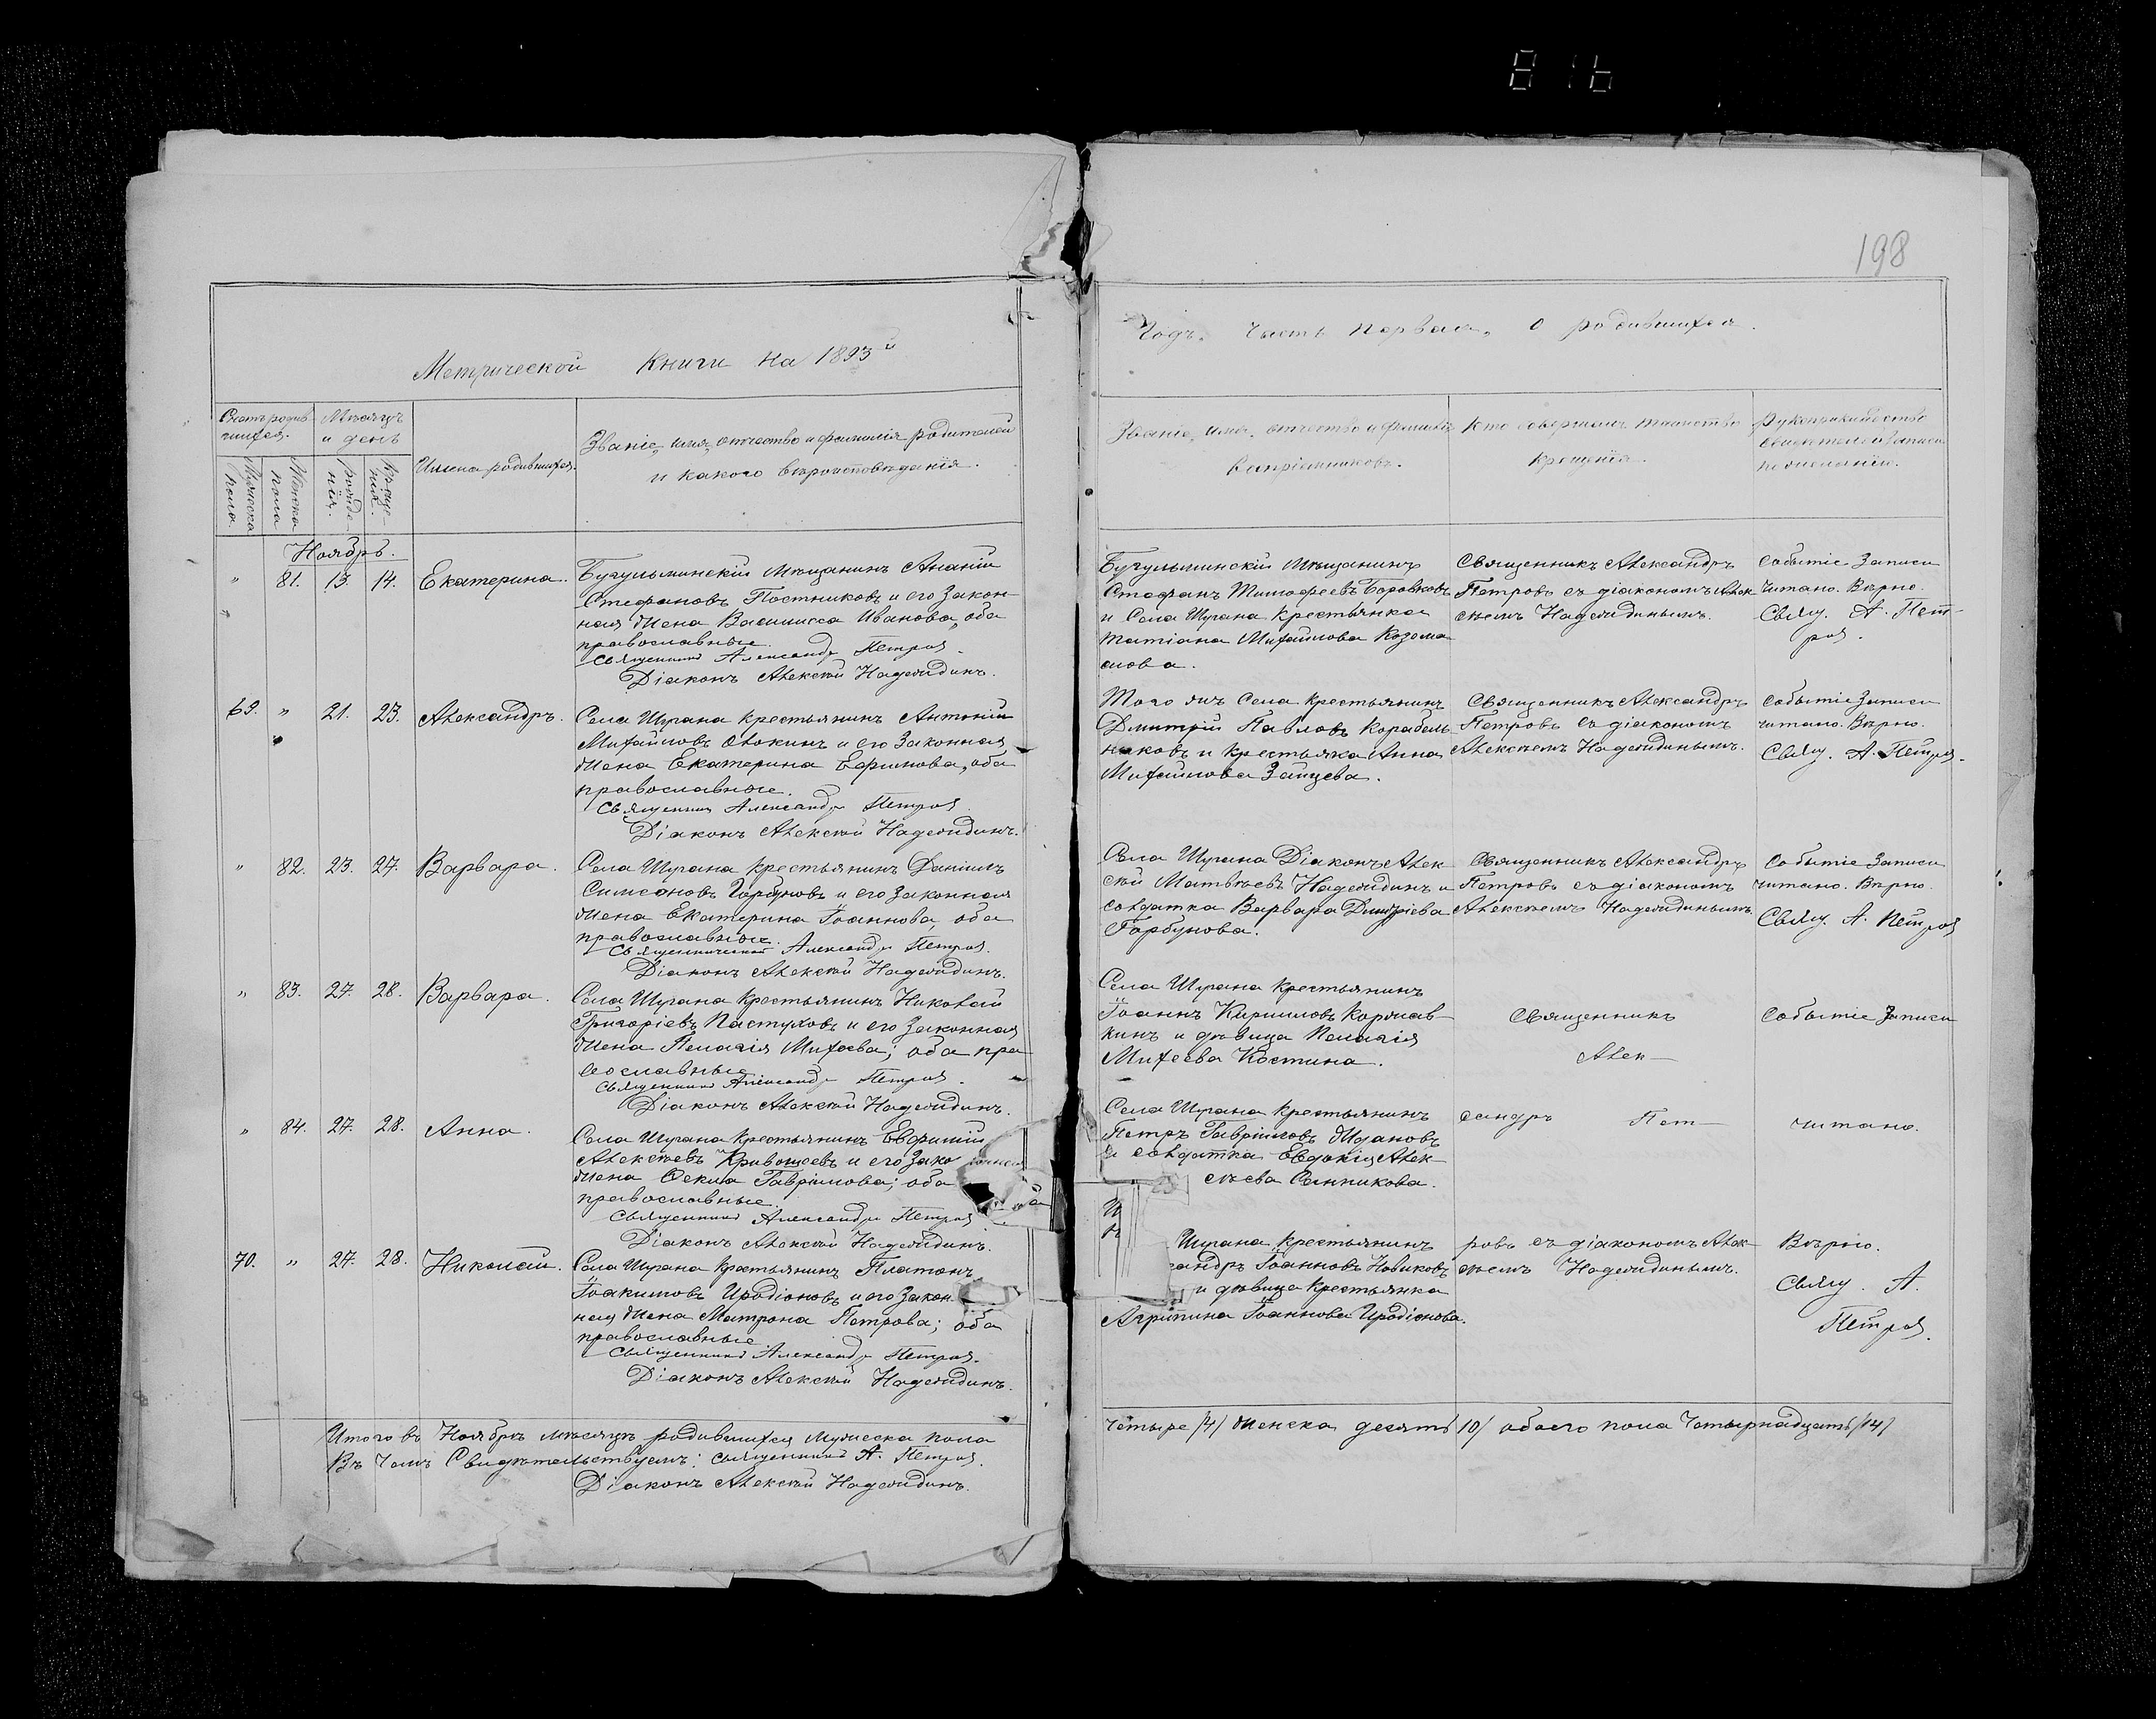 816
198
Метрической Книги на 1893й
Годъ. Часть первая, о родившихся.
Счетъ родив-
шихся.
Мѣсяцъ
и день
Мужеска
пола.
Женска
пола
рожде-
нія.
креще-
нія.
Имена родившихся.
Званіе, имя, отчество и фамилія родителей
и какого вѣроисповѣданія.
Званіе, имя, отчество и фамилія
воспріемниковъ.
Кто совершалъ таинство
крещенія
Рукоприкладство
свидетелей записи
по желанію.
Ноябрь.
" 81. 13. 14. Екатерина.
Бугульминскій мѣщанинъ Ананій
Стефановъ Постниковъ и его закон-
ная жена Василисса Иванова, оба
православные.
Священникъ Александръ Петровъ.
Діаконъ Алексѣй Надеждинъ.
Бугульминскій мѣщанинъ
Стефанъ Тимофеевъ Боровковъ
и Села Шугана крестьянка
Татіана Михайлова Козома
слова.
Священникъ Александръ
Петровъ съ діакономъ Алек
сѣемъ Надеждинымъ.
Событіе записи
читано. Вѣрно.
Свящ. А. Пет-
ровъ.
69. " 21. 23. Александръ.
Села Шугана крестьянинъ Антоній
Михайловъ Олокинъ и его законная
жена Екатерина Ефимова, оба
православные.
Священникъ Александръ Петровъ
Діаконъ Алексѣй Надеждинъ.
Того жъ Села крестьянинъ
Дмитрій Павловъ Корабель
никовъ и крестьянка Анна
Михайлова Зайцева.
Священникъ Александръ
Петровъ съ діакономъ
Алексѣемъ Надеждинымъ.
Событіе записи
читано. Вѣрно.
Свящ. А. Петровъ.
" 82. 23. 27. Варвара.
Села Шугана крестьянинъ Даніилъ
Симеоновъ Горбуновъ и его законная
жена Екатерина Іоаннова, оба
православные.
Священническій Александръ Петровъ.
Діаконъ Алексѣй Надеждинъ.
Села Шугана Діаконъ Алек
сѣй Матвѣевъ Надеждинъ и
солдатка Варвара Димитріева
Горбунова.
Священникъ Александръ
Петровъ съ діакономъ
Алексѣемъ Надеждинымъ.
Событіе записи
читано. Вѣрно.
Свящ. А. Петровъ
" 83. 27. 28. Варвара.
Села Шугана крестьянинъ Николай
Григоріевъ Пастуховъ и его законная
жена Пелагія Михеева; оба пра-
вославные
Священникъ Александръ Петровъ.
Діаконъ Алексѣй Надеждинъ.
Села Шугана крестьянинъ
Іоаннъ Кирилловъ Корчав-
кинъ и дѣвица Пелагія
Михеева Костина.
Священникъ
Алек-
Событіе записи
" 84. 27. 28. Анна.
Села Шугана крестьянинъ Евфимій
Алексѣевъ Кривошеевъ и его зако
жена Фекла Гавріилова; оба
православные.
Священникъ Александръ Петровъ
Діаконъ Алексѣй Надеждинъ.
Села Шугана крестьянинъ
Петръ Гавріиловъ Ждановъ
и солдатка Евдокія Алек-
сѣева Санникова.
сандръ Пет-
читано.
70. " 27. 28. Николай.
Села Шугана крестьянинъ Платонъ
Іоакимовъ Иродіоновъ и его закон
ная жена Матрона Петрова; оба
православные
Священникъ Александръ Петровъ.
Діаконъ Алексѣй Надеждинъ.
Шугана крестьянинъ
андръ Іоанновъ Новиковъ
и дѣвица крестьянка
Агрипина Іоаннова Иродіонова.
ровъ съ діакономъ Алек-
сѣемъ Надеждинымъ.
Вѣрно.
Свящ. А.
Петровъ.
Итого въ Ноябрѣ мѣсяцѣ родившихся мужеска пола
четыре /4/ женска десять /10/ обоего пола четырнадцать /14/
Въ чемъ Свидѣтельствуемъ: Священникъ А. Петровъ.
Діаконъ Алексѣй Надеждинъ.